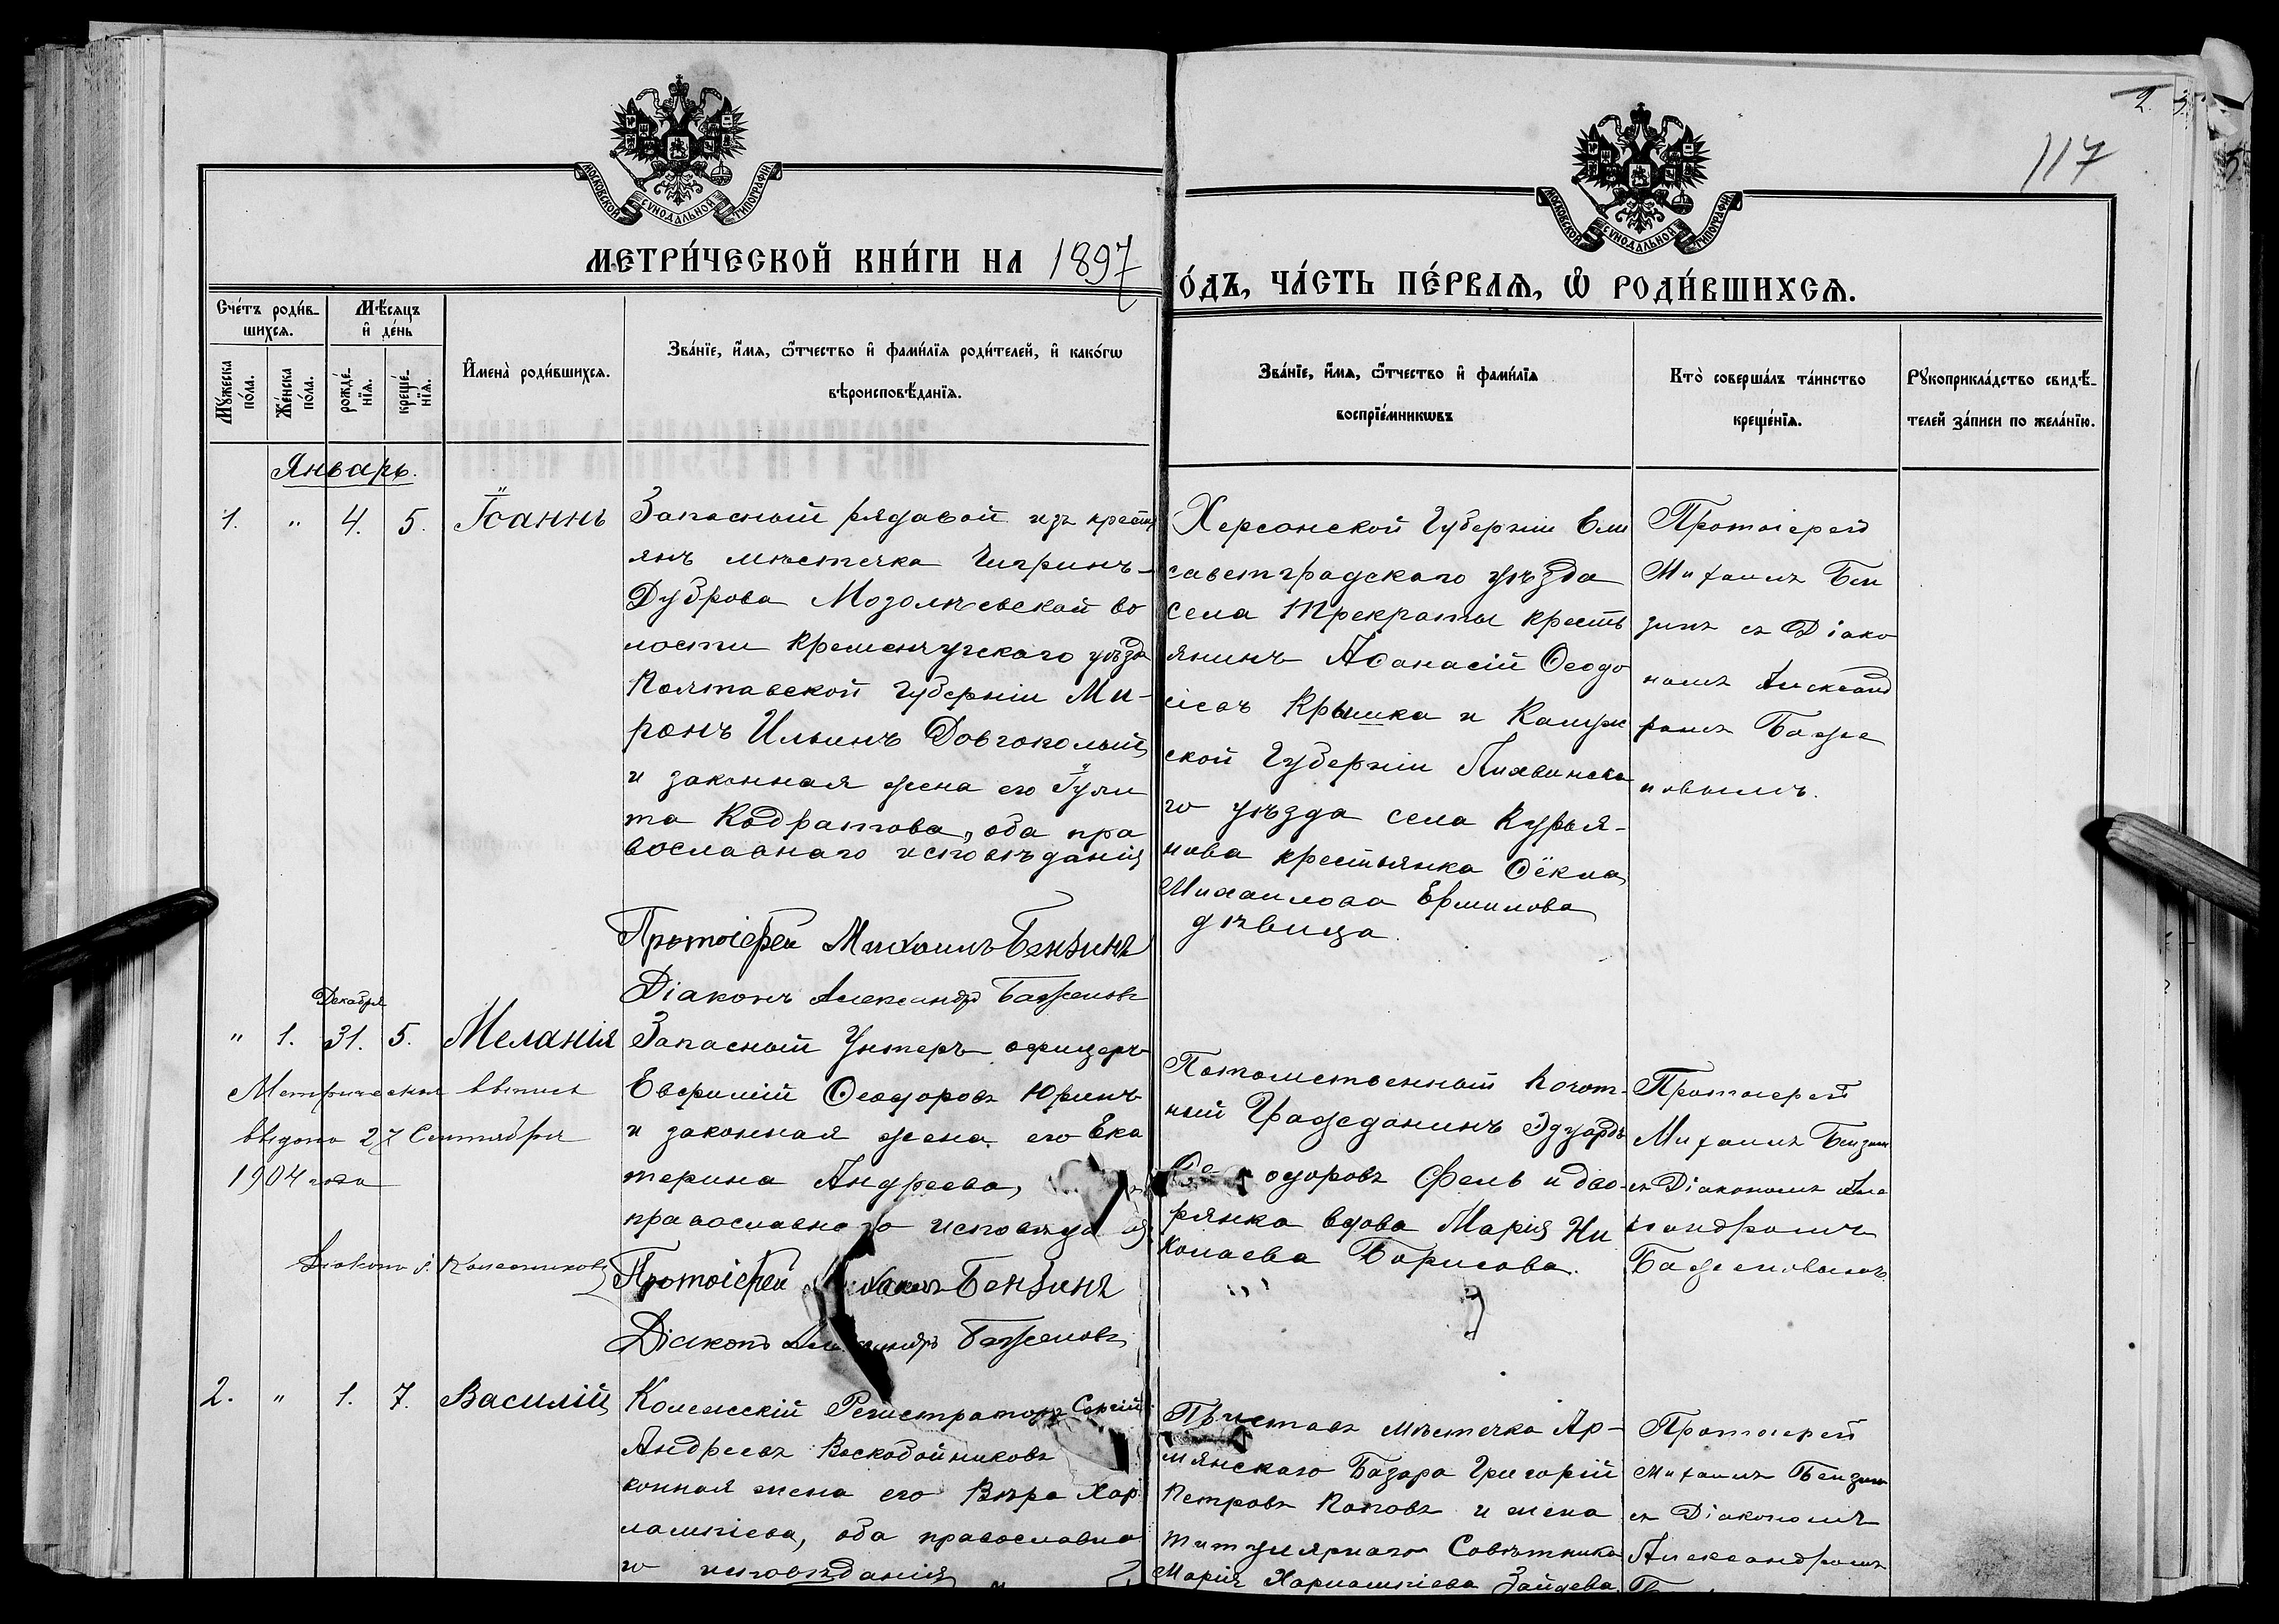 2 3
117
5
МОСКОВСКОЙ СѴНОДАЛЬНОЙ ТИПОГРАФІИ
МОСКОВСКОЙ СѴНОДАЛЬНОЙ ТИПОГРАФІИ
МЕТРИ́ЧЕСКОЙ КНИ́ГИ НА 1897
О́ДЪ, ЧА́СТЬ ПЕ́РВАѦ, Ѡ҆ РОДИ́ВШИХСѦ.
Сче́тъ роди́в-
шихсѧ.
Мѣ́сѧцъ
и҆ де́нь
Мꙋ́жеска
по́ла.
Же́нска
по́ла.
рожде́-
нїѧ.
креще́-
нїѧ.
И҆мена̀ роди́вшихсѧ.
Зва́нїе, и҆́мѧ, ѻ҆́тчество и҆ фами́лїѧ роди́телей, и҆ како́гѡ
вѣроисповѣ́данїѧ.
Зва́нїе, и҆́мѧ, ѻ҆́тчество и҆ фами́лїѧ
воспрїе́мникѡвъ
Кто̀ соверша́лъ та́инство
креще́нїѧ.
Рꙋкоприкла́дство свидѣ́-
телей за́писи по жела́нїю.
Январь.
1. " 4. 5. Іоаннъ
Запасный рядовой изъ кресть
янъ мѣстечка Чигринъ-
Дуброва Мозолѣевской во
лости Кременчугского уѣзда
Полтавской губерніи Ми-
ронъ Ильинъ Довгополый
и законная жена его Іули
та Кодратова, оба пра
вославнаго исповѣданія
Протоіерей Михаилъ Бензинъ
Діаконъ Александръ Баженовъ
Херсонской Губерніи Ели
саветградскаго уѣзда
села Трекраты кресть
янинъ Аѳанасій Ѳеодо
сіевъ Крышка и Калуж
ской Губерніи Лихвинска
го уѣзда села Курья-
нова крестьянка Ѳёкла
Михаилова Ермилова
дѣвица.
Протоіерей
Михаилъ Бен
зинъ съ Діако
номъ Александ
ромъ Баже
новымъ.
Декабря
" 1. 31. 5. Меланія
Метрическая выпись
выдана 27 Сентября
1904 года
Діаконъ І. Колесниковъ
Запасный Унтеръ-офицеръ
Евфимій Ѳеодоровъ Юринъ
и законная жена его Ека
терина Андреева,
православнаго исповѣда ія
Протоіерей Михаилъ Бензинъ
Діаконъ Александръ Баженовъ
Потомственный Почот-
ный Гражданинъ Эдуардъ
Ѳе одоровъ Фель и дво-
рянка вдова Марія Ни
колаева Борисова.
Протоіерей
Михаилъ Бензинъ
съ Діакономъ Але
ксандромъ
Баженовымъ
2. " 1. 7. Василій
Колежскій Регистраторъ Сергій
Андреевъ Воскобойниковъ
конная жена его Вѣра Хар
лампіева, оба православна
го исповѣданія
Приставъ мѣстечка Ар-
мянскаго Базара Григорій
Петровъ Поповъ и жена
Титулярнаго Совѣтника
Марія Харлампіева Зайцева
Протоіерей
Михаилъ Бензинъ
съ Діакономъ
Александромъ